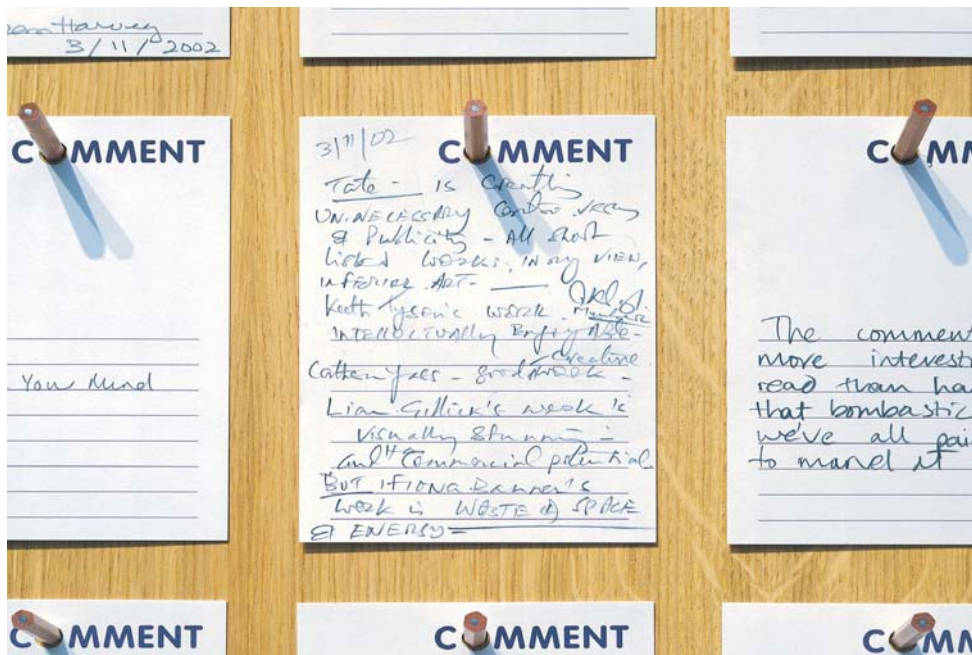 Harvey
3/11/2002
COMMENT
You Mind
COMMENT
3/11/02
Tate - is creating
UN.NECESSARY controversy
& Publicity - All short
listed works, IN my VIEW,
INFERIOR ART-
Keith Tyson's work
INTELLECTUALLY Empty
creative
Catherine Yass - good work -
Liam Gillick's work is
visually stunning =
and commercial potential
BUT Fiona Banner's
work is WASTE of SPACE
& ENERGY=
COMM
The comment
more interesti
read than ha
that bombastic
we've all pai
to marvel at
COMMENT
COMMENT
COMM